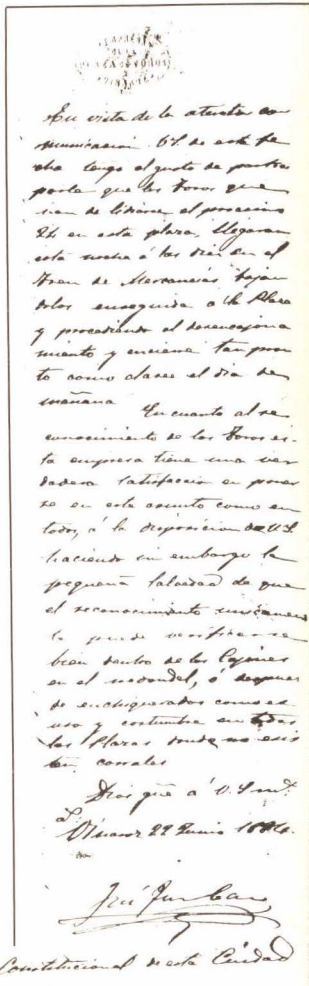 En vista de la atenta co
municacion de esta fe
cha tengo el gusto de partici
parle que los toros que
han de lidiarse el proximo
24 en esta plaza, llegaran
esta noche á las diez en el
tren de Mercancías, bajan
dolos enseguida a la Plaza
y procediendo al desencajona
miento y encierre tan pron
to como claree el dia de
mañana
En cuanto al re
conocimiento de los toros es-
ta empresa tiene una ver
dadera satisfaccion en poner
se en este asunto como en
todos, á la disposicion de U.S.
haciendo sin embargo la
pequeña salvedad de que
el reconocimiento unicamen
te puede verificarse
bien dentro de los Cajones
en el redondel, ó despues
de enchiquerados como es
uso y costumbre en todas
las Plazas donde no exis
ten corrales
Dios gûe á V.S. m.
a.
22 Junio 1884.
José
Constitucional de esta Ciudad